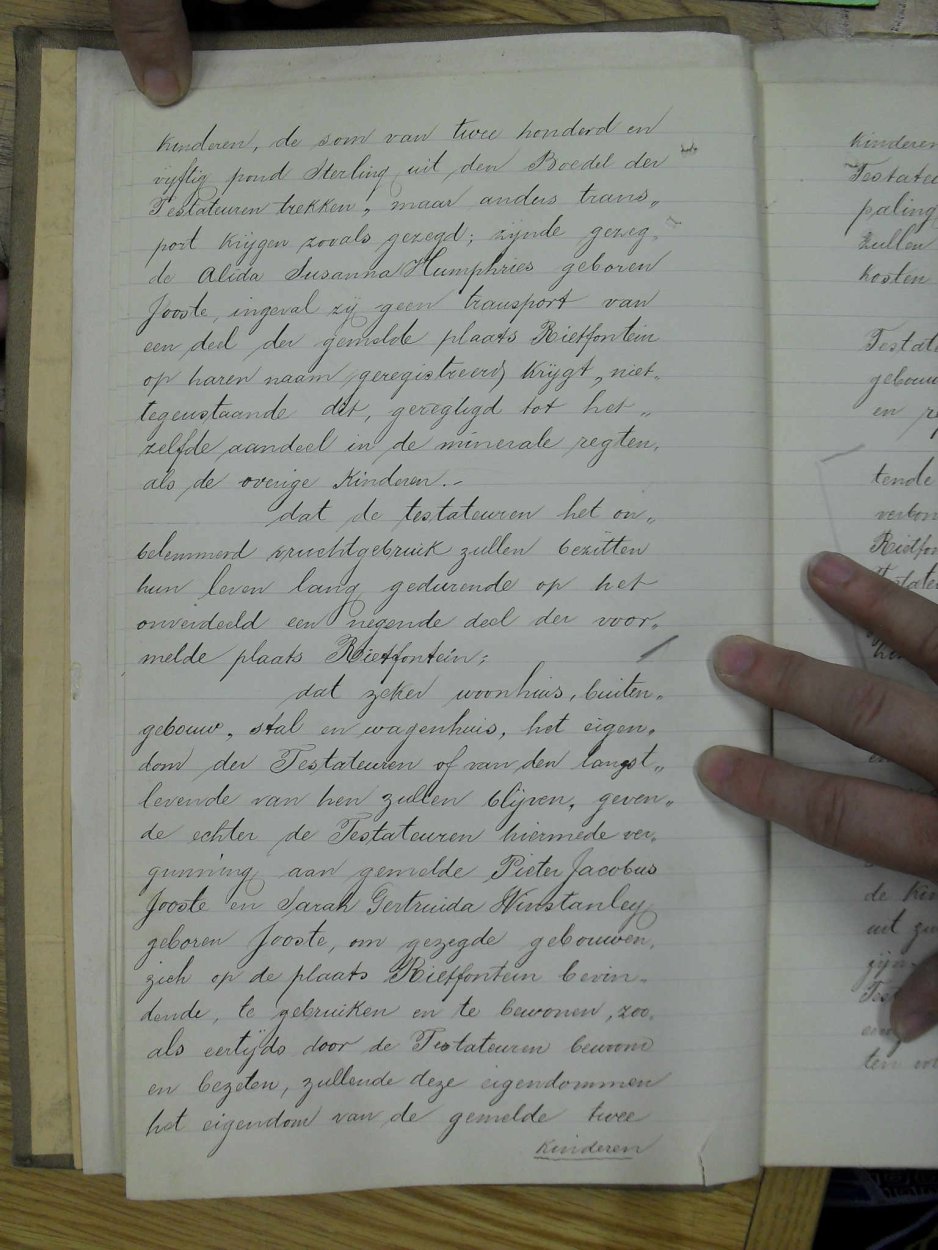 kinderen, de som van twee honderd en
vijftig pond Sterling uit den Boedel der
Testateuren trekken, maar anders trans„
port krijgen zooals gezegd; zijnde gezeg„
de Alida Susanna Humphries geboren
Jooste, ingeval zij geen transport van
een deel der gemelde plaats Rietfontein
op haren naam geregistreerd krijgt, niet„
tegenstaande dit, geregtigd tot het„
zelfde aandeel in de minerale regten,
als de overige Kinderen.–
dat de testateuren het on„
belemmerd vruchtgebruik zullen bezitten
hun leven lang gedurende op het
onverdeeld een negende deel der voor„
melde plaats Rietfontein;
dat zeker woonhuis, buiten„
gebouw, stal en wagenhuis, het eigen„
dom der Testateuren of van den langst„
levende van hen zullen blijven, geven„
de echter de Testateuren hiermede ver„
gunning aan gemelde Pieter Jacobus
Jooste en Sarah Gertruida Winstanley
geboren Jooste, om gezegde gebouwen,
zich op de plaats Rietfontein bevin„
dende, te gebruiken en te bewonen, zoo„
als eertijds door de Testateuren bewoond
en bezeten, zullende deze eigendommen
het eigendom van de gemelde twee
kinderen
kinderen
Testateu
paling
zullen
kosten
Testate
gebouw
en re
tende
verbon
Rietfon
Testaten
de kin
uit zu
zijn
Tes
ten vo